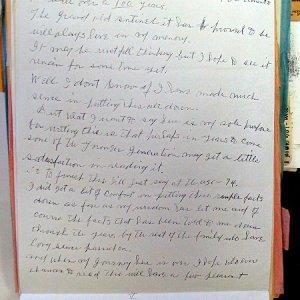 well over a 100 years.
The grand old sentinel it has proved to be
will always live in my memory.
It may be wistfull thinking but I hope to see it
remain for some time yet.
Well I don't know if I have made much
sense in putting this all down.
But what I want to say here is my sole purpose
for writing this is that perhaps in years to come
some of the younger generation may get a little
satisfaction in reading it.
So to finish this I'll just say at the age - 74,
I did get a lot of comfort in putting these simple facts
down as far as my wisdom has let me and of
course the facts that has been told to me down
through the years by the rest of the family who have
long since passed on.
and when my journey here is over I hope who ever
chances to read this will have a few pleasant